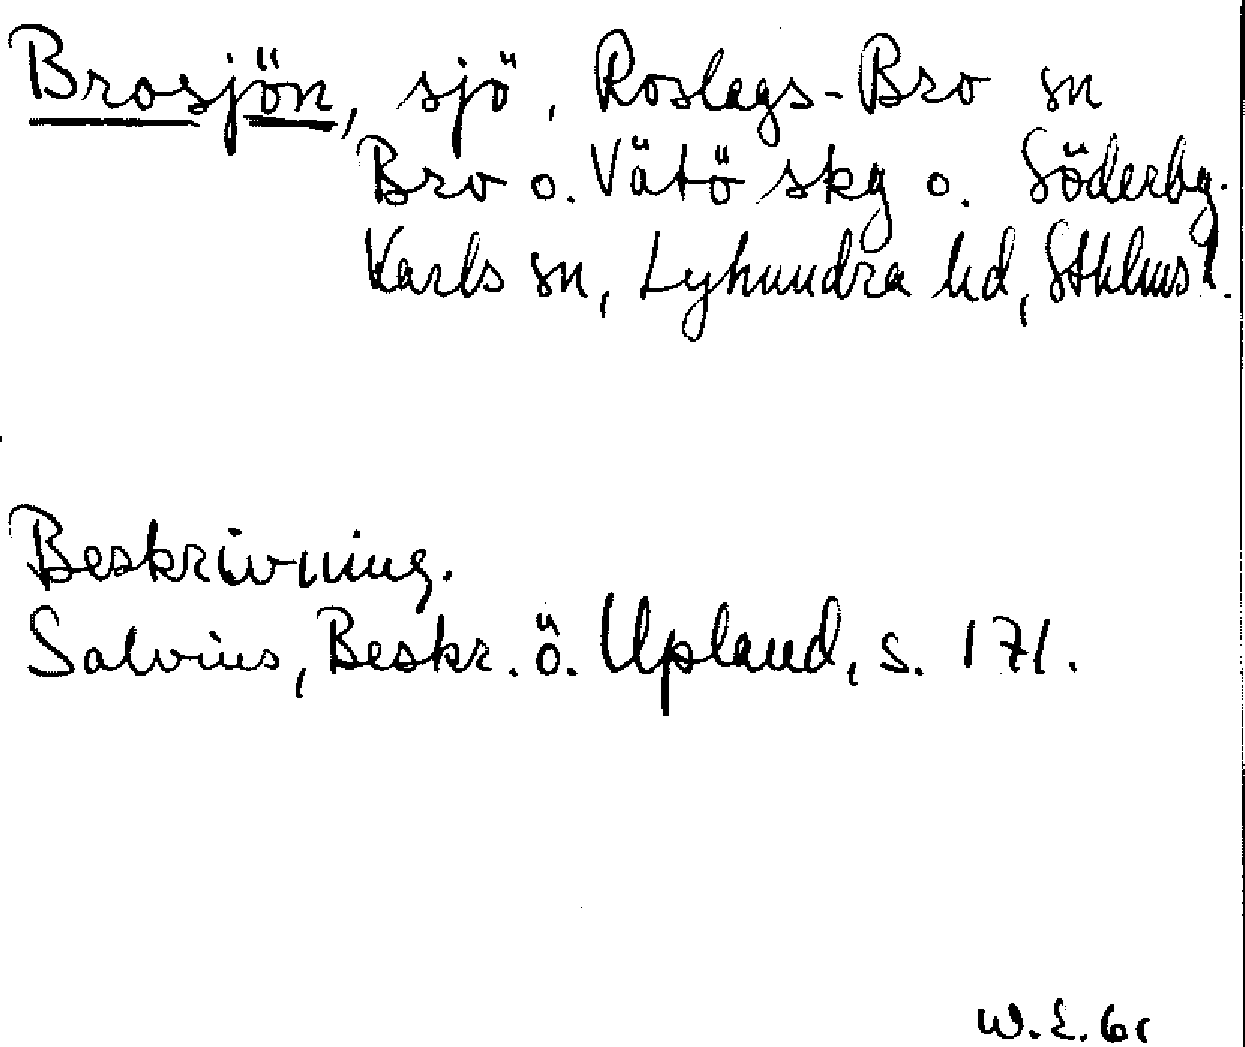 Brosjön, sjö, Roslags-Bro sn
Bro o. Vätö skg o. Söderby-
Karls sn, Lyhundra hd, Sthlms l.
Beskrivning.
Salvius, Beskr. ö. Upland, s. 171.
W.E. 61